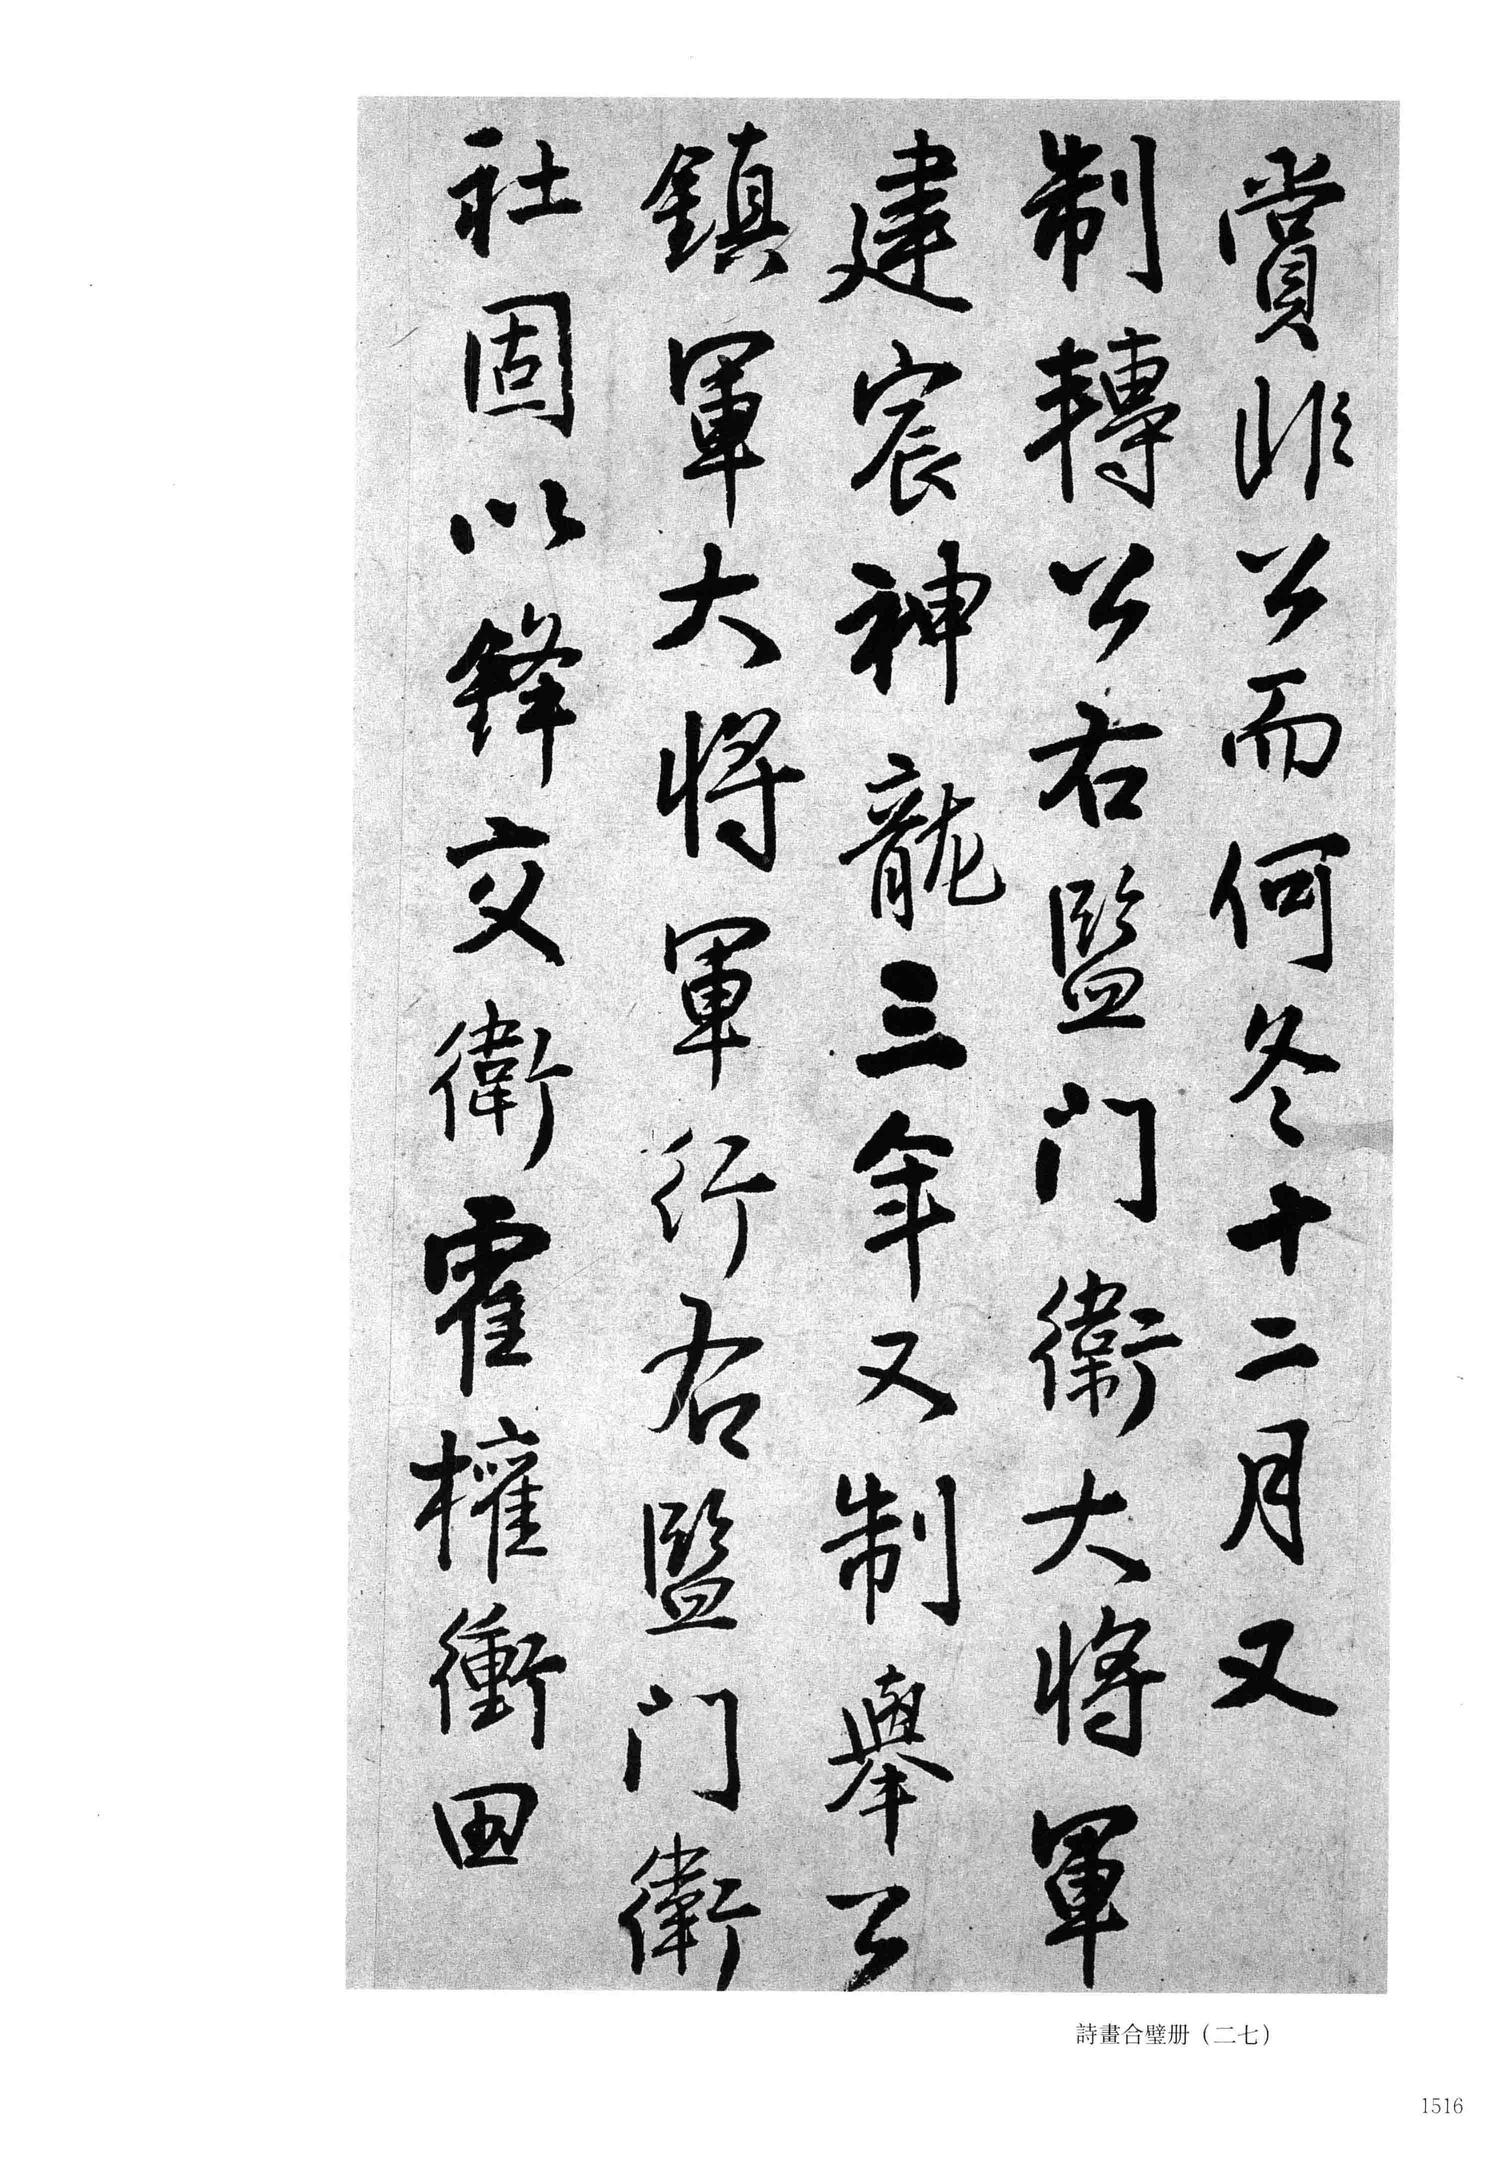 賞非公而何冬十二月又
制轉公右監门衛大将軍
建宸神龍三年又制舉公
鎮軍大将軍行右監门衛
社固以鋒交衛霍權衝田
詩畫合璧册（二七）
1516